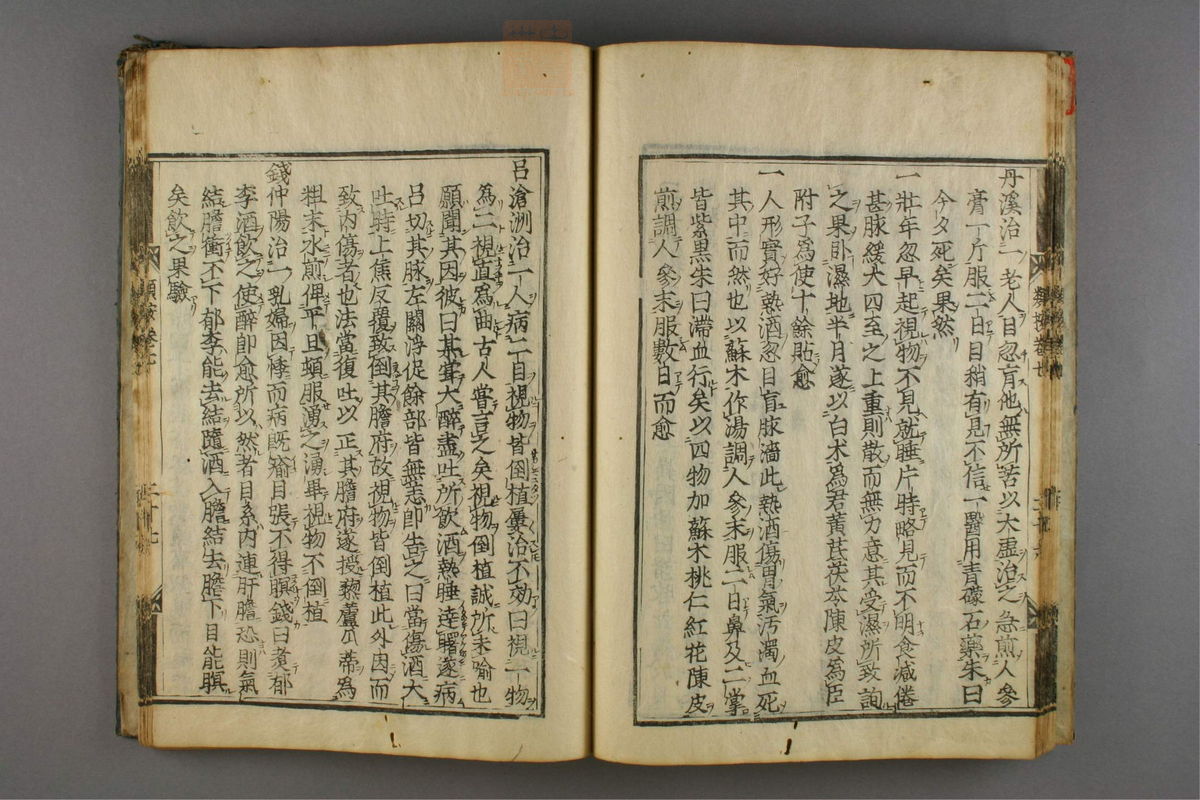 丹溪治一老人目忽盲他無所苦以大虛治之急煎人參
膏一斤服二日目稍有見不信一醫用青礞石藥朱曰
今夕死矣果然
一壯年忽早起視物不見就睡片時略見而不明食减倦
甚脉緩大四至之上重則散而無力意其受濕所致詢
之果卧濕地半月遂以白术爲君黄芪茯苓陳皮爲臣
附子爲使十餘貼愈
一人形實好熱酒忽目盲脉濇此熱酒傷胃氣汚濁血死
其中而然也以蘇木作湯調人參末服二日鼻及二掌
皆紫黒朱曰滯血行矣以四物加蘇木桃仁紅花陳皮
煎調人參末服數日而愈
吕滄洲治一人病二目視物皆倒植屢治不効曰視一物
爲二視直爲曲古人嘗言之矣視物倒植誠所未喻也
願聞其因彼曰某宴大醉盡吐所飲酒熱睡逹曙遂病
吕切其脉左關浮促餘部皆無恙即告之曰當傷酒大
吐時上焦反覆致倒其膽府故視物皆倒植此不外因而
致内傷者也法當復吐以正其膽府遂授藜蘆瓜蒂爲
粗末水煎俾平旦頓服湧之湧畢視物不倒植
錢仲陽治一乳婦因悸而病既瘉目張不得瞑錢曰煮郁
李酒飲之使醉即愈所以然者目系内連肝膽恐則氣
結膽衡不下郁李能去結隨酒入膽結去膽下目能瞑
矣飲之果驗
類按卷七
二十七